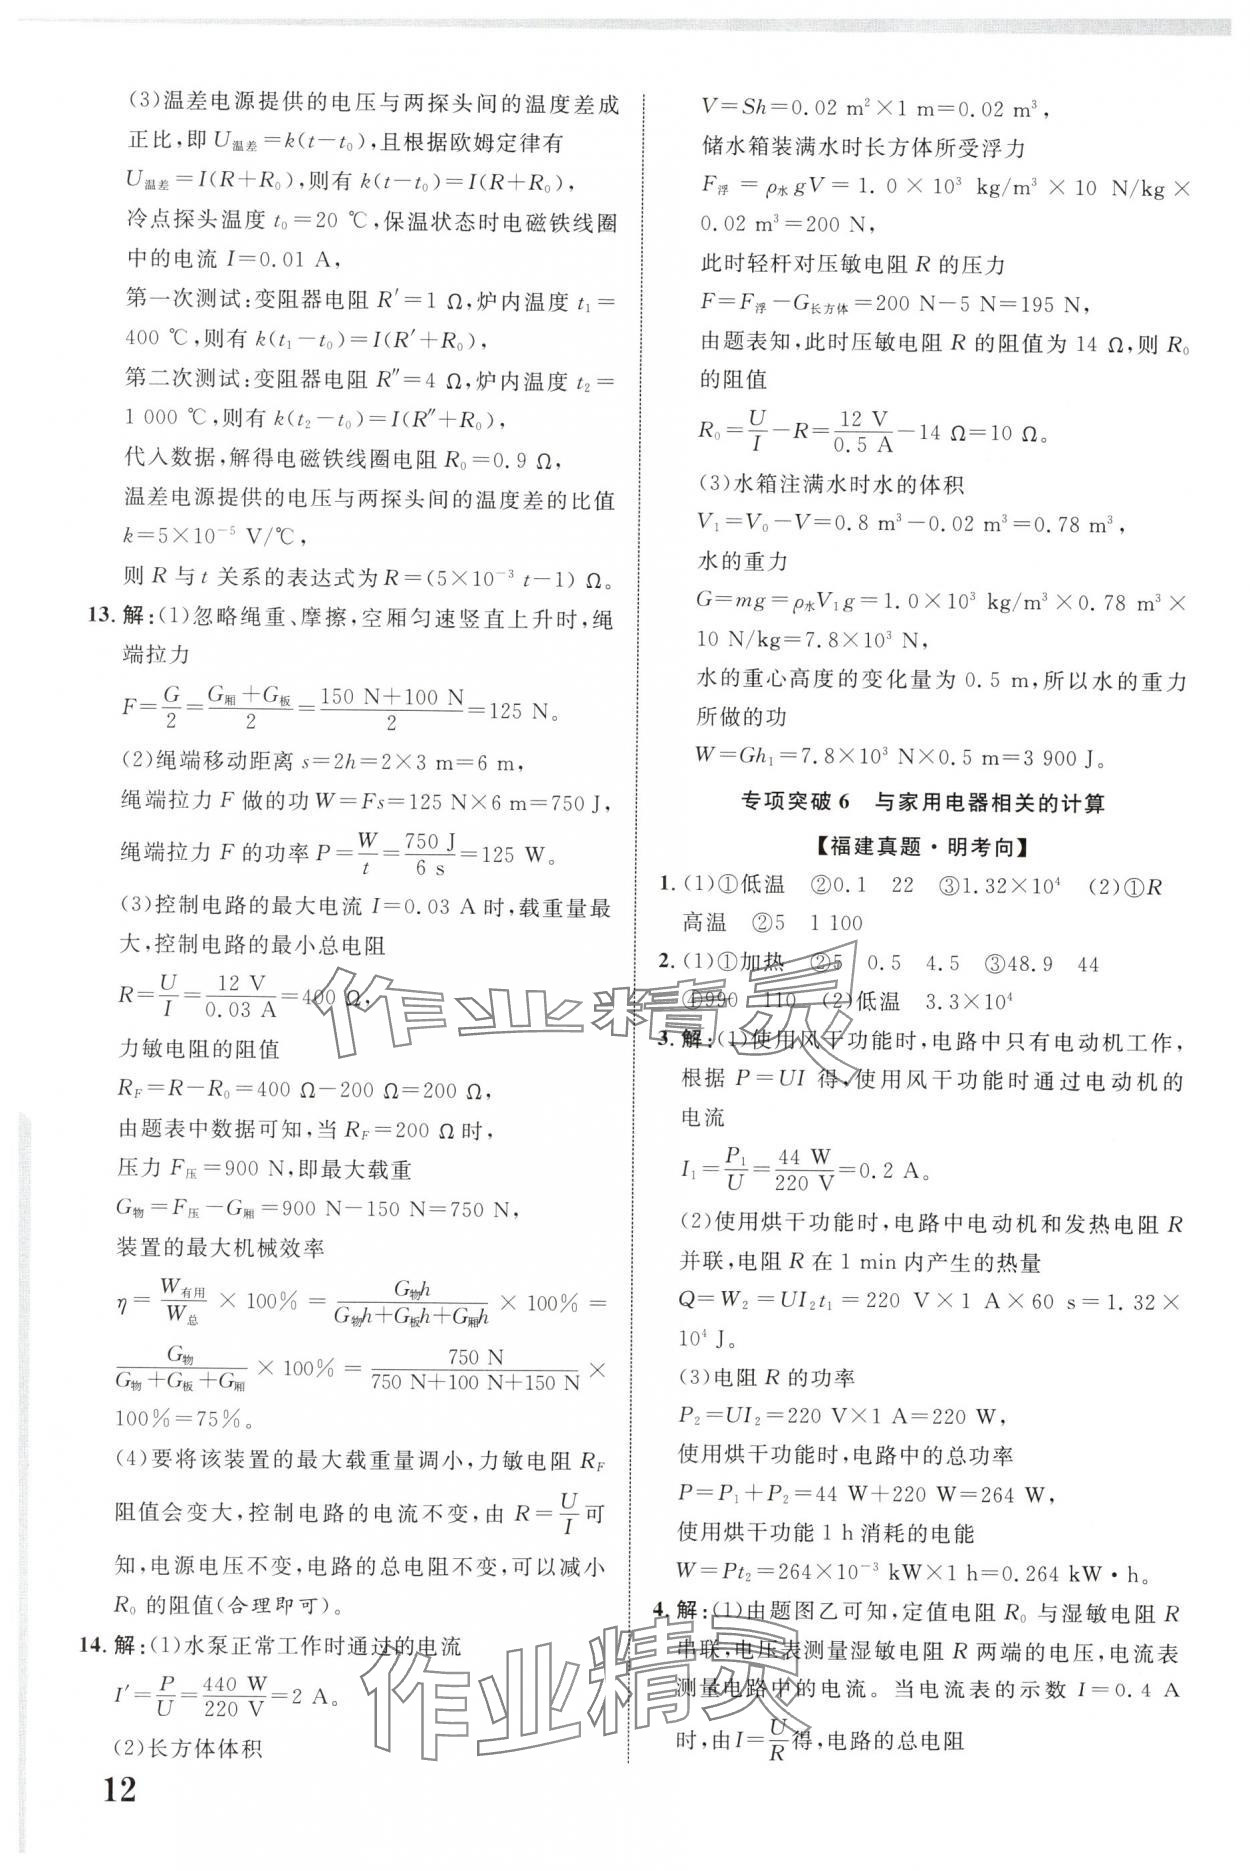 (3)温差电源提供的电压与两探头间的温度差成
正比,即 U温差=k(t-t₀),且根据欧姆定律有
U温差=I(R+R₀),则有 k(t-t₀)=I(R+R₀),
冷点探头温度 t₀=20 ℃,保温状态时电磁铁线圈
中的电流 I=0.01 A,
第一次测试:变阻器电阻 R′=1 Ω,炉内温度 t₁=
400 ℃,则有 k(t₁-t₀)=I(R′+R₀),
第二次测试:变阻器电阻 R″=4 Ω,炉内温度 t₂=
1 000 ℃,则有 k(t₂-t₀)=I(R″+R₀),
代入数据,解得电磁铁线圈电阻 R₀=0.9 Ω,
温差电源提供的电压与两探头间的温度差的比值
k=5×10⁻⁵ V/℃,
则 R 与 t 关系的表达式为 R=(5×10⁻³ t-1) Ω。
13. 解:(1)忽略绳重、摩擦,空厢匀速竖直上升时,绳
端拉力
F=G/2=(G厢+G板)/2=(150 N+100 N)/2=125 N。
(2)绳端移动距离 s=2h=2×3 m=6 m,
绳端拉力 F 做的功 W=Fs=125 N×6 m=750 J,
绳端拉力 F 的功率 P=W/t=750 J/6 s=125 W。
(3)控制电路的最大电流 I=0.03 A 时,载重量最
大,控制电路的最小总电阻
R=U/I=12 V/0.03 A=400 Ω,
力敏电阻的阻值
R_F=R-R₀=400 Ω-200 Ω=200 Ω,
由题表中数据可知,当 R_F=200 Ω 时,
压力 F压=900 N,即最大载重
G物=F压-G厢=900 N-150 N=750 N,
装置的最大机械效率
η=W有用/W总×100%=G物h/(G物h+G板h+G厢h)×100%=
G物/(G物+G板+G厢)×100%=750 N/(750 N+100 N+150 N)×
100%=75%。
(4)要将该装置的最大载重量调小,力敏电阻 R_F
阻值会变大,控制电路的电流不变,由 R=U/I可
知,电源电压不变,电路的总电阻不变,可以减小
R₀ 的阻值(合理即可)。
14. 解:(1)水泵正常工作时通过的电流
I′=P/U=440 W/220 V=2 A。
(2)长方体体积
12
V=Sh=0.02 m²×1 m=0.02 m³,
储水箱装满水时长方体所受浮力
F浮=ρ水gV=1.0×10³ kg/m³×10 N/kg×
0.02 m³=200 N,
此时轻杆对压敏电阻 R 的压力
F=F浮-G长方体=200 N-5 N=195 N,
由题表知,此时压敏电阻 R 的阻值为 14 Ω,则 R₀
的阻值
R₀=U/I-R=12 V/0.5 A-14 Ω=10 Ω。
(3)水箱注满水时水的体积
V₁=V₀-V=0.8 m³-0.02 m³=0.78 m³,
水的重力
G=mg=ρ水V₁g=1.0×10³ kg/m³×0.78 m³×
10 N/kg=7.8×10³ N,
水的重心高度的变化量为 0.5 m,所以水的重力
所做的功
W=Gh₁=7.8×10³ N×0.5 m=3 900 J。
专项突破 6 与家用电器相关的计算
【福建真题·明考向】
1. (1)①低温 ②0.1 22 ③1.32×10⁴ (2)①R
高温 ②5 1 100
2. (1)①加热 ②5 0.5 4.5 ③48.9 44
④990 110 (2)低温 3.3×10⁴
3. 解:(1)使用风干功能时,电路中只有电动机工作,
根据 P=UI 得,使用风干功能时通过电动机的
电流
I₁=P₁/U=44 W/220 V=0.2 A。
(2)使用烘干功能时,电路中电动机和发热电阻 R
并联,电阻 R 在 1 min 内产生的热量
Q=W₂=UI₂t₁=220 V×1 A×60 s=1.32×
10⁴ J。
(3)电阻 R 的功率
P₂=UI₂=220 V×1 A=220 W,
使用烘干功能时,电路中的总功率
P=P₁+P₂=44 W+220 W=264 W,
使用烘干功能 1 h 消耗的电能
W=Pt₂=264×10⁻³ kW×1 h=0.264 kW·h。
4. 解:(1)由题图乙可知,定值电阻 R₀ 与湿敏电阻 R
串联,电压表测量湿敏电阻 R 两端的电压,电流表
测量电路中的电流。当电流表的示数 I=0.4 A
时,由 I=U/R得,电路的总电阻
作业精灵
作业精灵